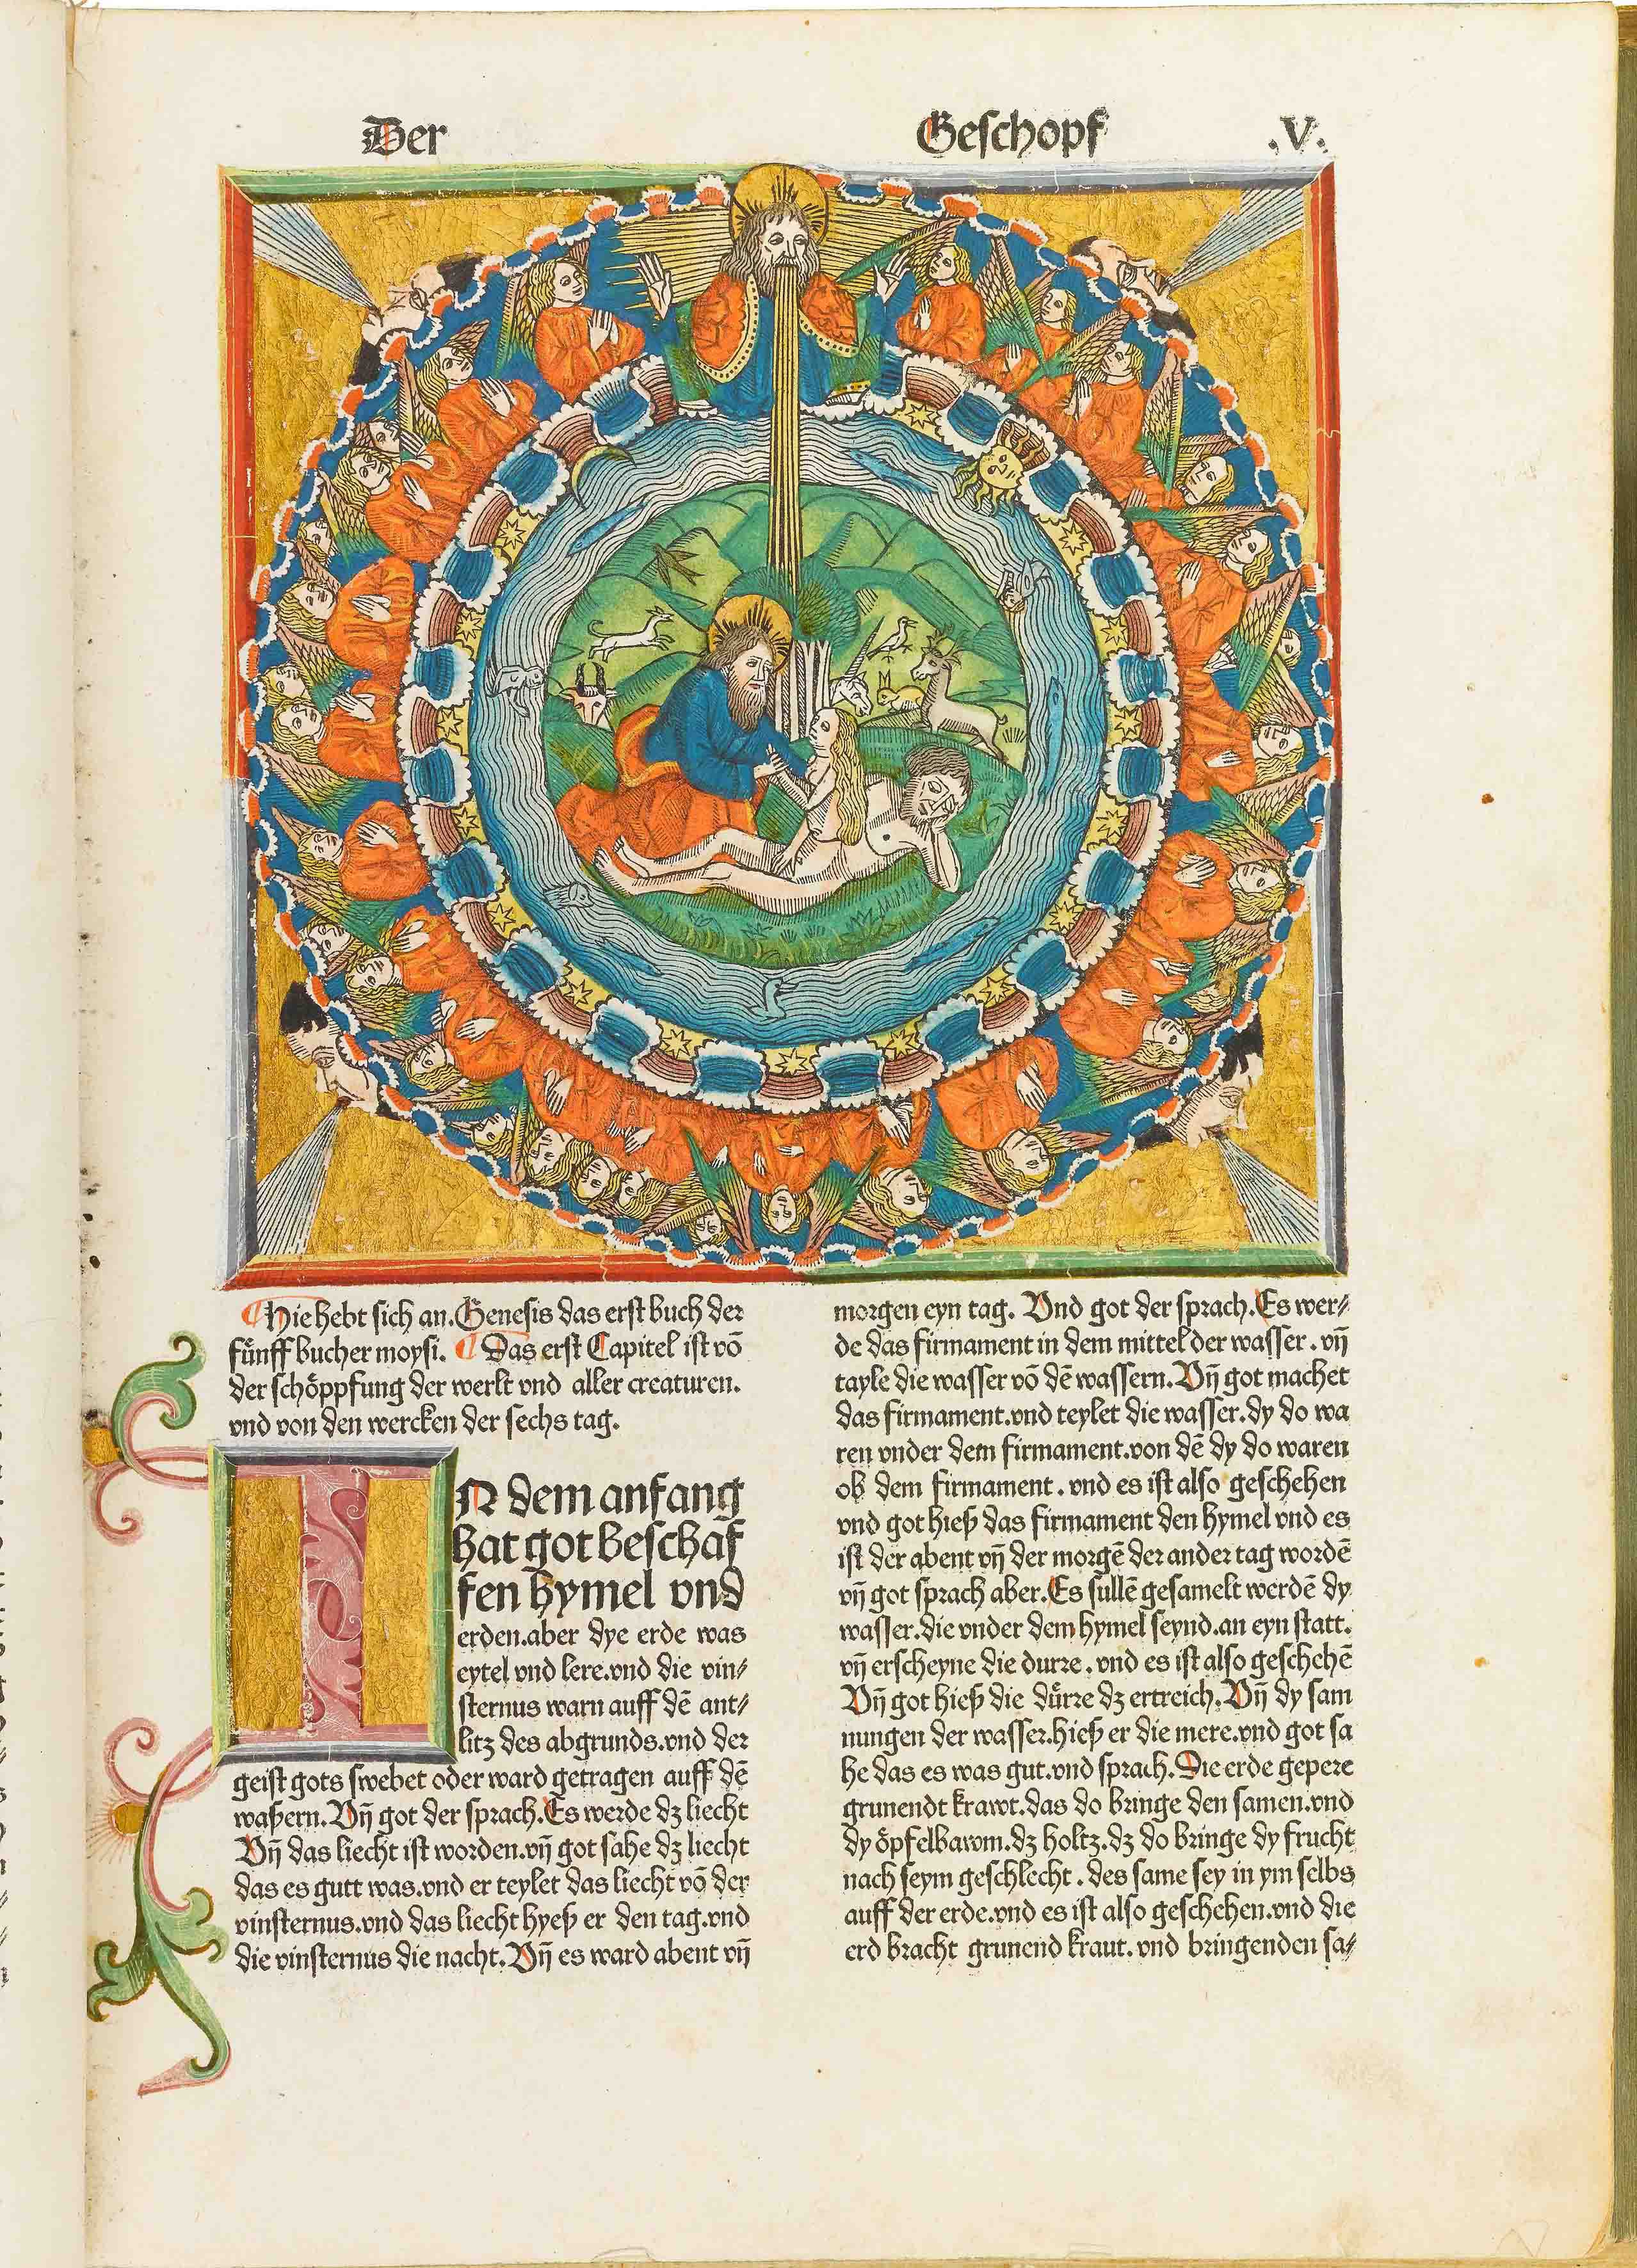 Der Geschopf .V.
Hie hebt sich an. Genesis das erst buch der
fünff bucher moysi. Das erst Capitel ist võ
der schöppfung der werlt vnd aller creaturen.
vnd von den wercken der sechs tag.
IN dem anfang
hat got beschaf
fen hymel vnd
erden.aber dye erde was
eytel vnd lere.vnd die vin⸗
sternus warn auff dẽ ant⸗
litz des abgrunds.vnd der
geist gots swebet oder ward getragen auff dẽ
waßern. Vñ got der sprach. Es werde dz liecht
Vñ das liecht ist worden.vñ got sahe dz liecht
das es gutt was.vnd er teylet das liecht võ der
vinsternus.vnd das liecht hyeß er den tag.vnd
die vinsternus die nacht. Vñ es ward abent vñ
morgen eyn tag. Vnd got der sprach. Es wer⸗
de das firmament in dem mittel der wasser. vñ
tayle die wasser võ dẽ wassern. Vñ got machet
das firmament.vnd teylet die wasser.dy do wa
ren vnder dem firmament.von dẽ dy do waren
ob dem firmament. vnd es ist also geschehen
vnd got hieß das firmament den hymel vnd es
ist der abent vñ der morgẽ der ander tag wordẽ
vñ got sprach aber. Es sullẽ gesamelt werdẽ dy
wasser.die vnder dem hymel seynd.an eyn statt.
vñ erscheyne die durre. vnd es ist also geschehẽ
Vñ got hieß die dürre dz ertreich. Vñ dy sam
nungen der wasser.hieß er die mere.vnd got sa
he das es was gut.vnd sprach. Die erde gepere
grunendt krawt.das do bringe den samen.vnd
dy öpfelbawm.dz holtz.dz do bringe dy frucht
nach seym geschlecht. des same sey in ym selbs
auff der erde.vnd es ist also geschehen.vnd die
erd bracht grunend kraut. vnd bringenden sa⸗